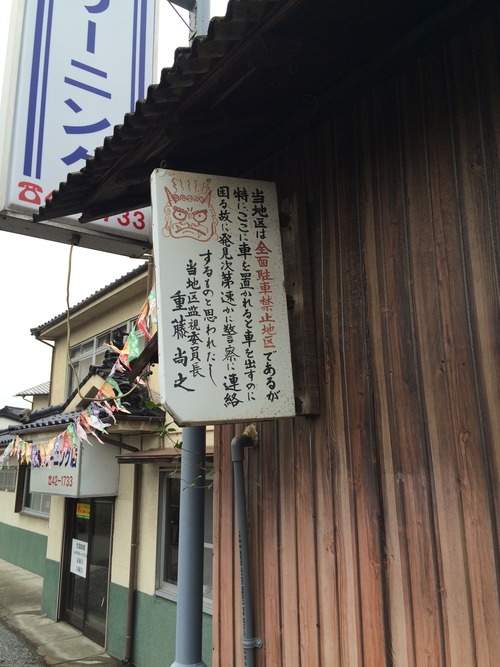 当地区は全面駐車禁止地区であるが
特にここに車を置かれると車を出すのに
困る故に発見次第速かに警察に連絡
するものと思われたし
当地区監視委員長
重藤尚之
ーニング
☎42-1733